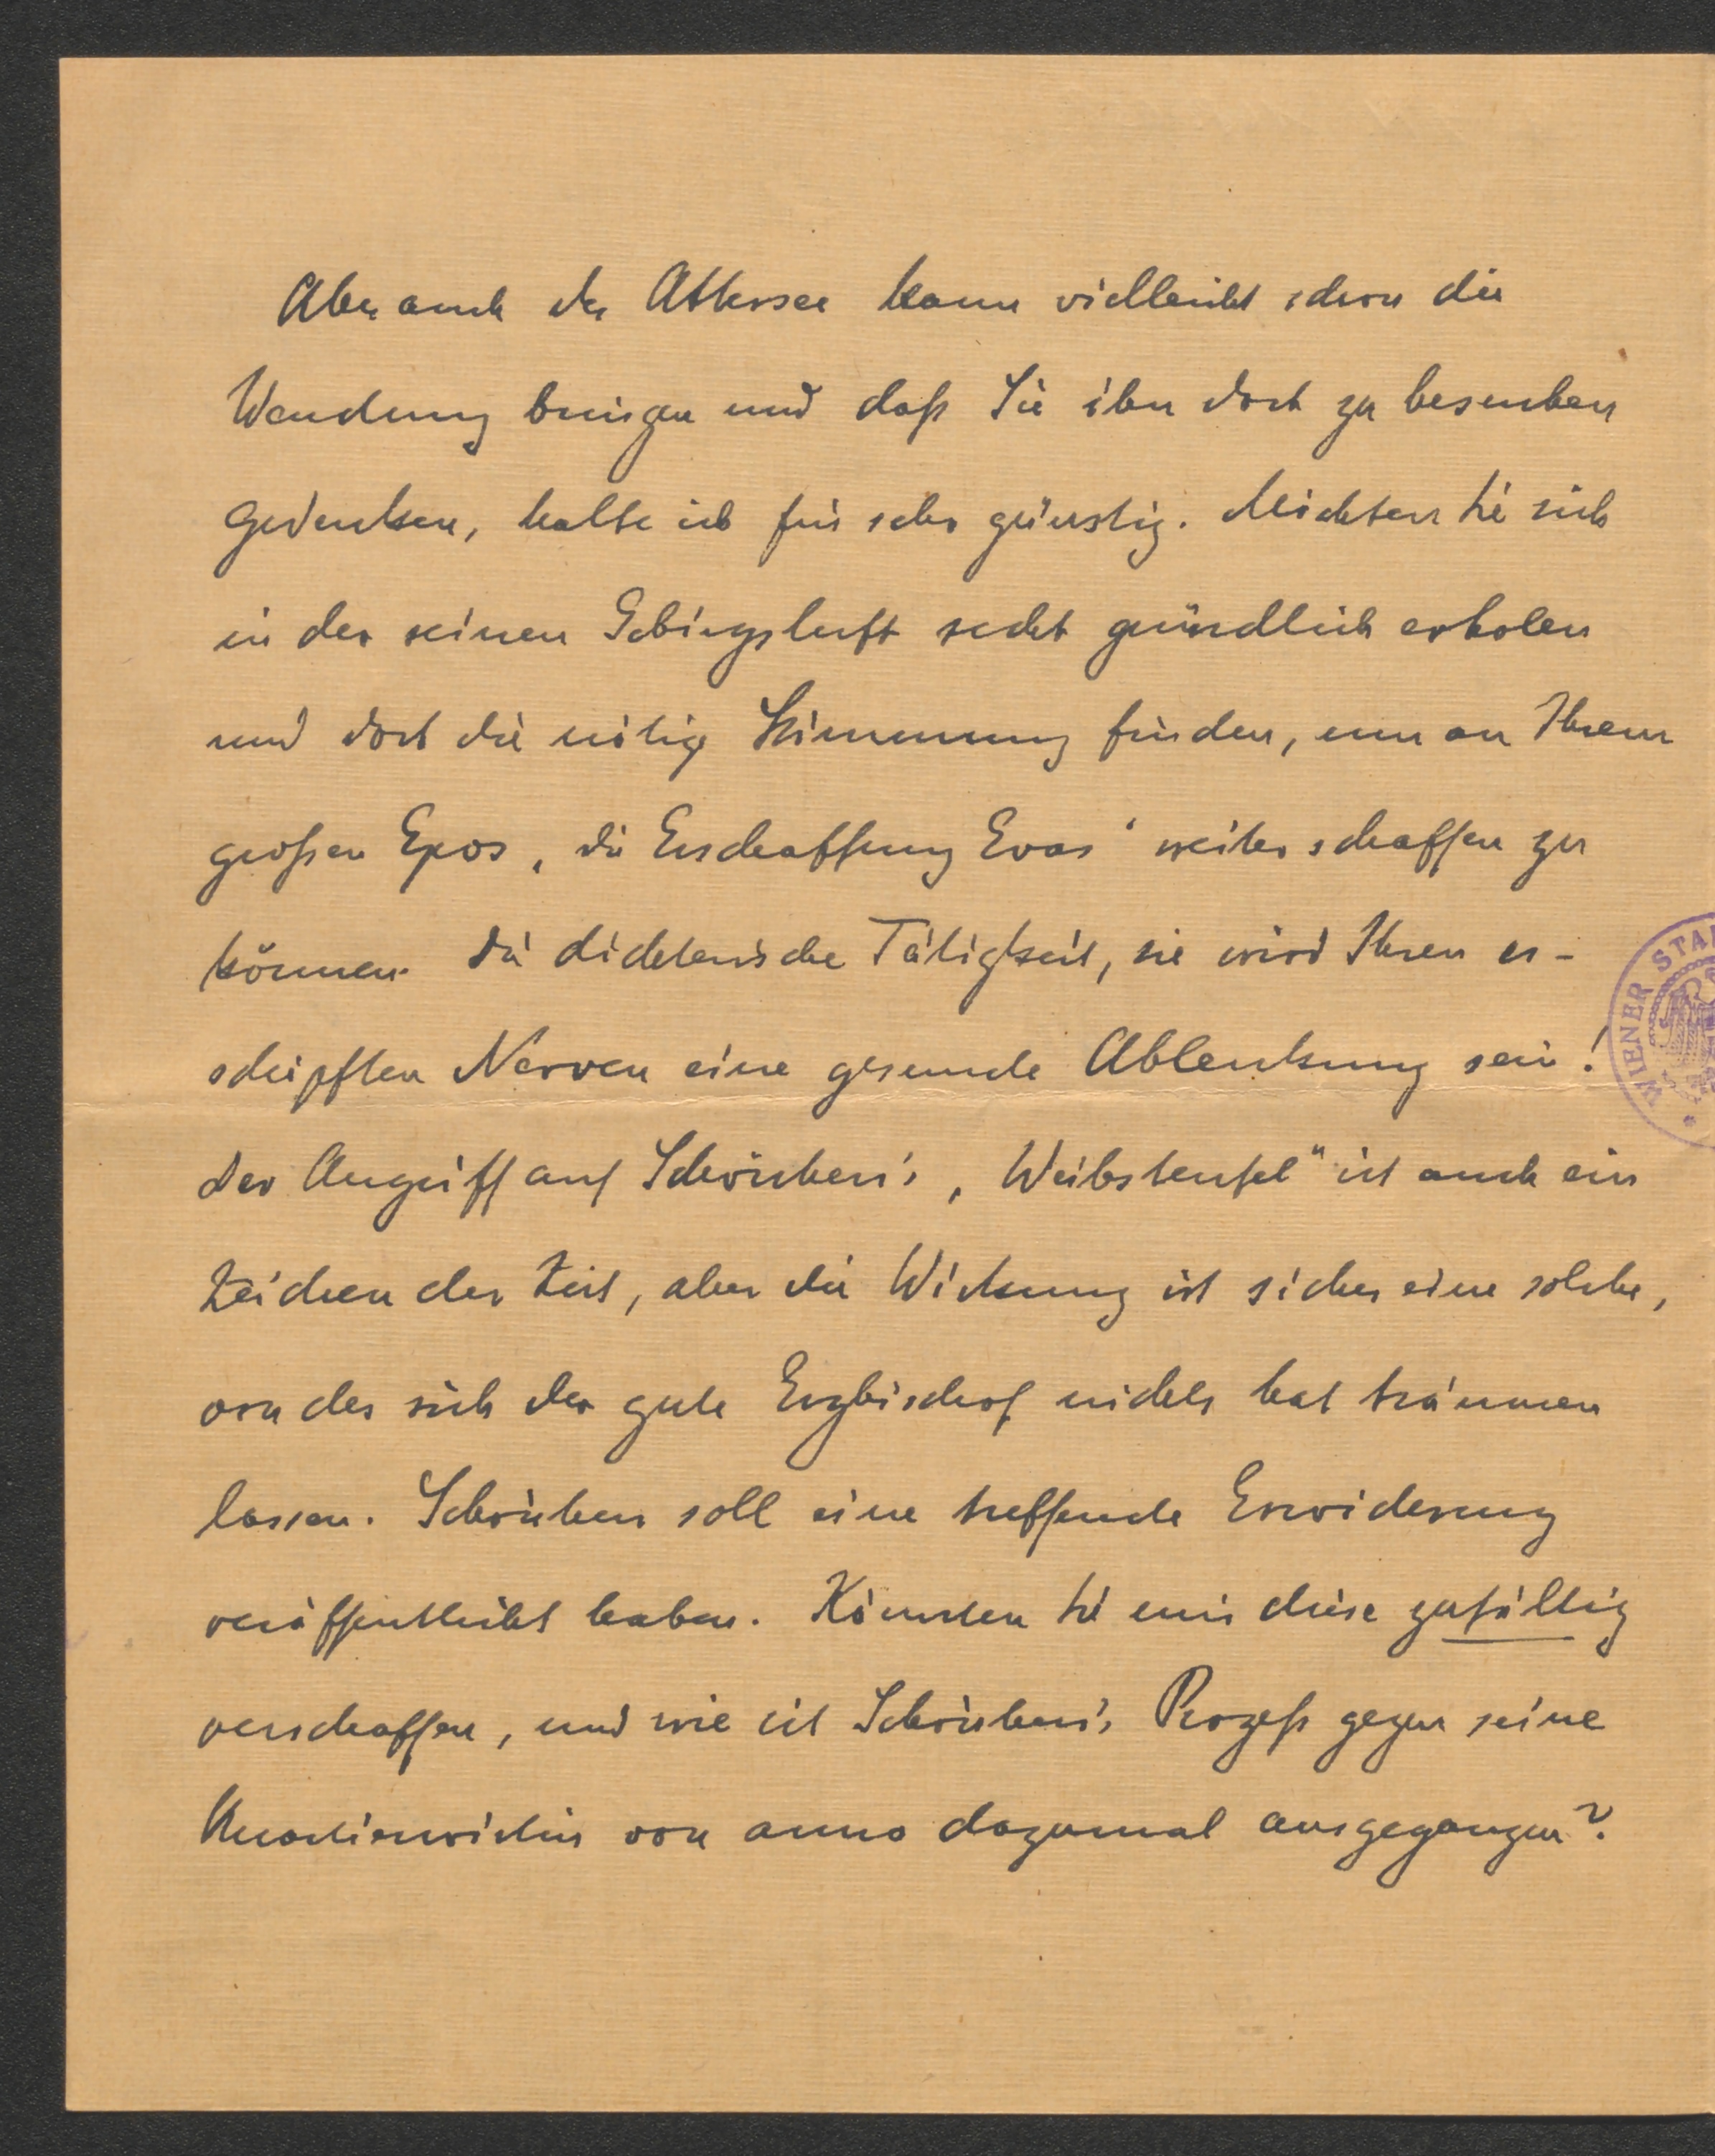 Aber auch der Attersee kann vielleicht schon die
Wendung bringen und daß Sie ihn dort zu besuchen
gedenken, halte ich für sehr günstig. Möchten Sie sich
in der reinen Gebirgsluft recht gründlich erholen
und dort die nötige Stimmung finden, um an Ihrem
großen Epos „die Erschaffung Evas“ weiter schaffen zu
können. Die dichterische Tätigkeit, sie wird Ihren er-
schöpften Nerven eine gesunde Ablenkung sein!
Der Angriff auf Schönherr's „Weibsteufel“ ist auch ein
Zeichen der Zeit, aber die Wirkung ist sicher eine solche,
von der sich der gute Erzbischof nichts hat träumen
lassen. Schönherr soll eine treffende Erwiderung
veröffentlicht haben. Könnten Sie mir diese zufällig
verschaffen, und wie ist Schönherr's Prozeß gegen seine
von anno dazumal ausgegangen?
WIENER STA